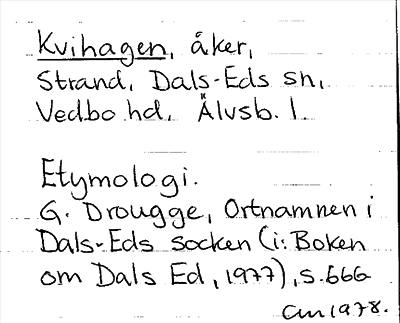 Kvihagen, åker,
Strand, Dals-Eds sn,
Vedbo hd. Älvsb. l.
Etymologi.
G. Drougge, Ortnamnen i
Dals-Eds socken (i: Boken
om Dals Ed, 1977), s. 666
CM 1978.